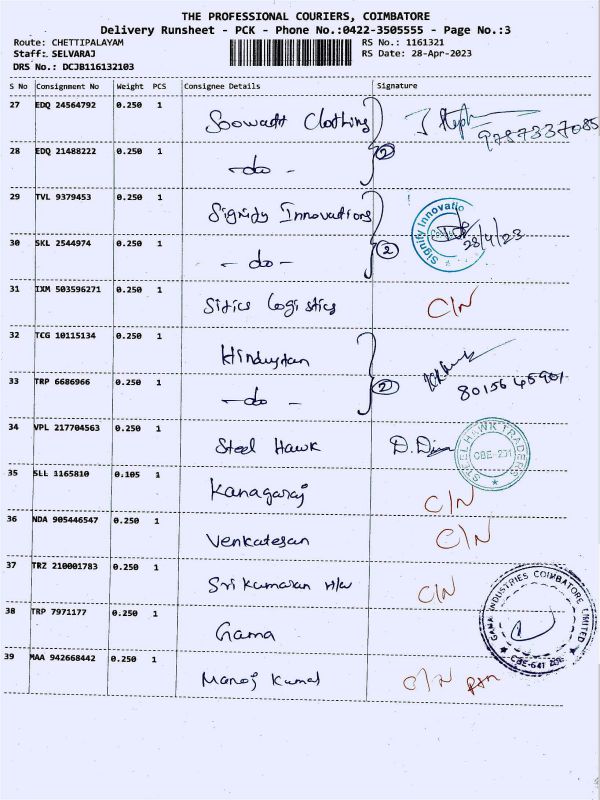 THE PROFESSIONAL COURIERS, COIMBATORE
Delivery Runsheet - PCK - Phone No.:0422-3505555 - Page No.:3
Route: CHETTIPALAYAM RS No.: 1161321
Staff: SELVARAJ RS Date: 28-Apr-2023
DRS No.: DCJB116132103
S No Consignment No Weight PCS Consignee Details Signature
27 EDQ 24564792 0.250 1 Soowadt Clothing
9787337085
28 EDQ 21488222 0.250 1 -do- 2
29 TVL 9379453 0.250 1 Signify Innovations Signify Innovatio
28/4/23
30 SKL 2544974 0.250 1 -do- 2
31 IXM 503596271 0.250 1 Sitics Logistics C/N
32 TCG 10115134 0.250 1 Hindustan
33 TRP 6686966 0.250 1 -do- 2 8015645901
34 VPL 217704563 0.250 1 Steel Hawk D. STEEL HAWK TRADERS CBE-201
35 SLL 1165810 0.105 1 Kanagaraj C/N
36 NDA 905446547 0.250 1 Venkatesan C/N
37 TRZ 210001783 0.250 1 Sri Kumaran H/w C/N
38 TRP 7971177 0.250 1 Gama GAMA INDUSTRIES COIMBATORE LIMITED CBE-641
39 MAA 942668442 0.250 1 Manoj Kumar C/N